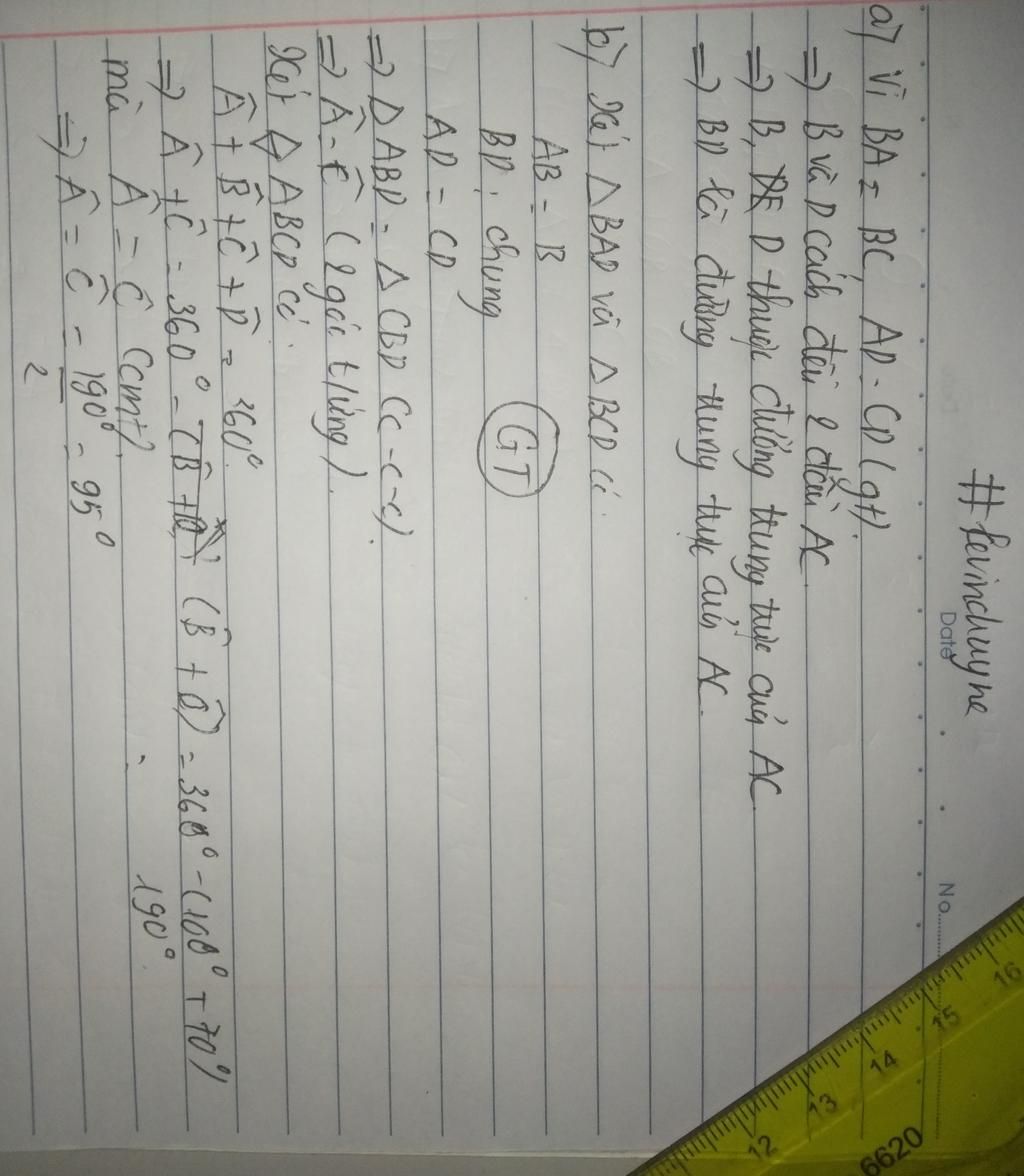 #kevinchuyne
Date
No.
a) Vì BA = BC, AD = CD (gt).
=) B và D cách đều 2 đầu AC
=) B, D thuộc đường trung trực của AC
=) BD là đường trung trực của AC.
b) Xét △ BAD và △ BCD có.
AB = B
BD: chung
GT
AD = CD
=) △ ABD = △ CBD (c-c-c).
=) Â = Ĉ (2 góc t/ứng).
Xét ◇ ABCD có
Â + B̂ + Ĉ + D̂ = 360°.
=) Â + Ĉ = 360° - (B̂ + D̂) = 360° - (100° + 70°)
= 190°.
mà Â = Ĉ (cmt).
=) Â = Ĉ = 190° = 95°
2
16
15
14
13
12
6620